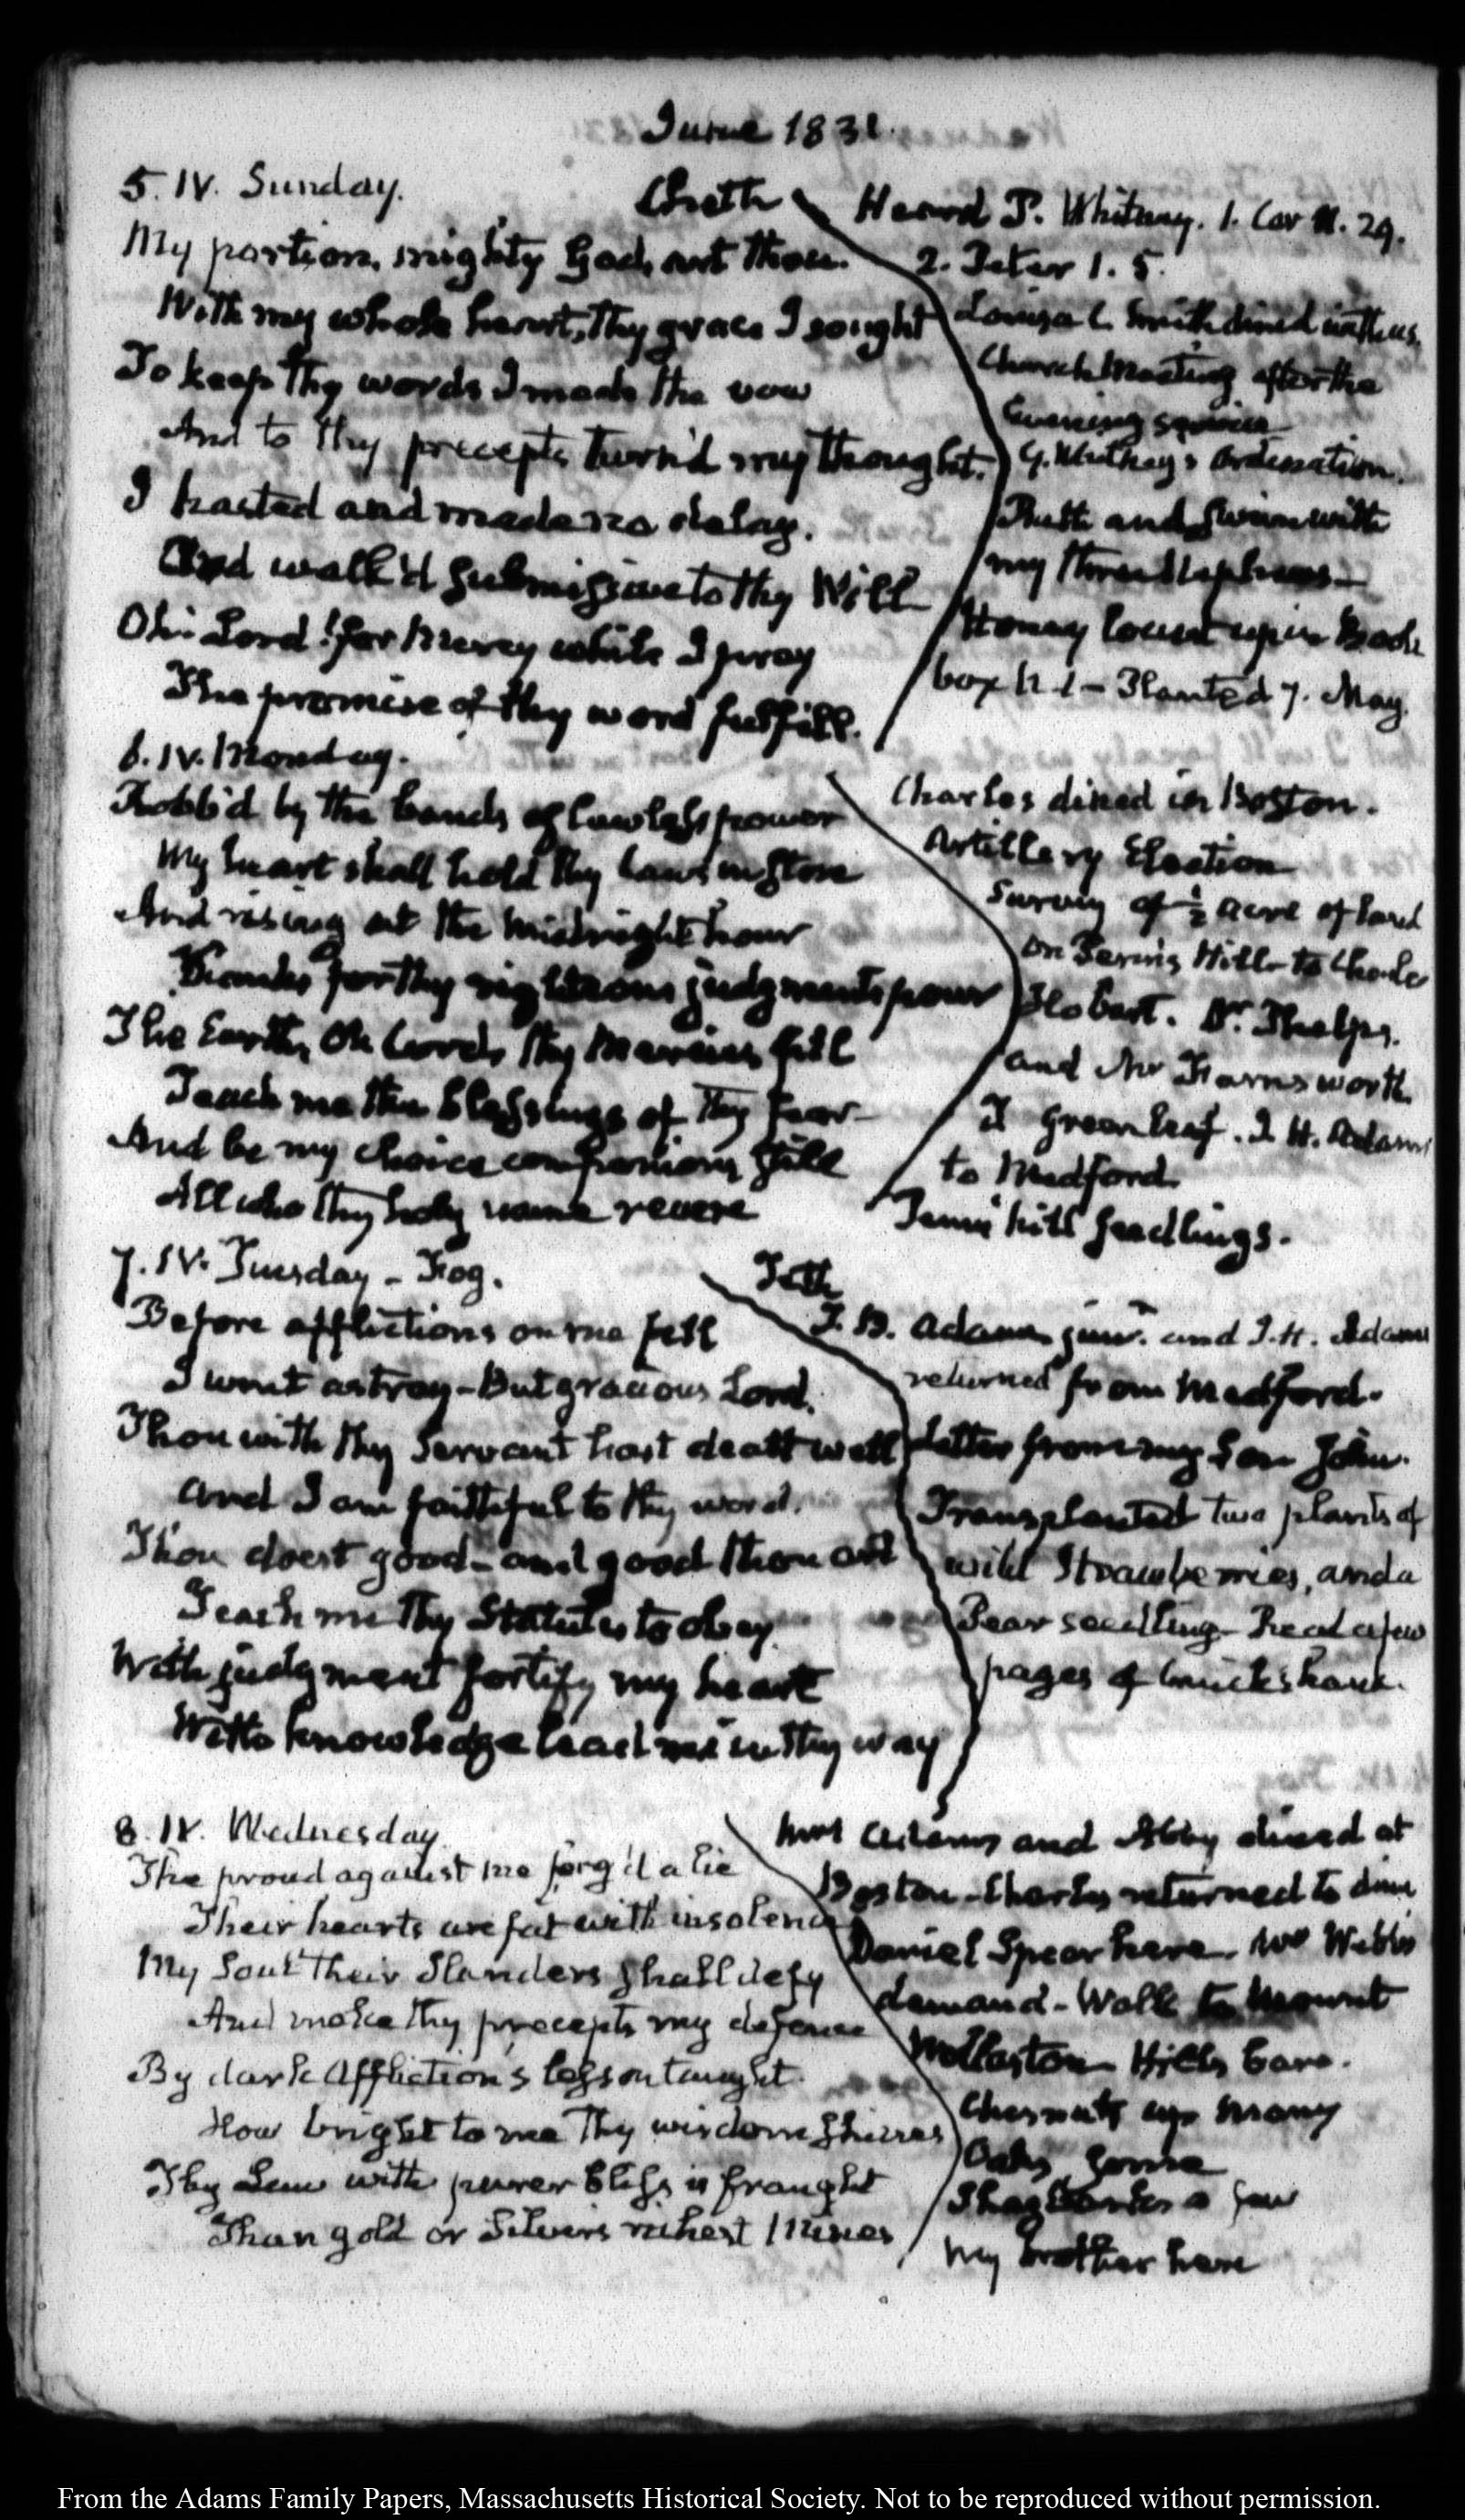 June 1831.
5. IV. Sunday.
Cheth
My portion, mighty God, art thou.
With my whole heart, thy grace I sought
To keep thy words I made the vow
And to thy precepts turn'd my thought.
I hasted and made no delay.
And walk'd submissive to thy Will
Oh! Lord! for mercy while I pray
The promise of thy word fulfill.
Heard P. Whitney. 1. Cor 11. 29.
2. Peter 1. 5.
Louisa C. Smith dined with us.
Church Meeting after the
Evening service
G. Whitney's Ordination.
Bath and swim with
my three Nephews—
Honey Locust up in Back
box N. 1 – Planted 7. May.
6. IV. Monday.
Robb'd by the bands of lawless power
My heart shall hold thy laws in store
And rising at the midnight hour
Thanks for thy righteous judgments pour
The Earth, Oh Lord, thy Mercies fill
Teach me the blessings of thy fear
And be my choice companions still
All who thy holy name revere
Charles dined in Boston.
Artillery Election
Survey of ½ acre of land
on Penn's Hill to Charles
Hobart. Dr. Phelps.
and Mr Farnsworth.
T Greenleaf. I. H. Adams
to Medford.
Penn's hill seedlings.
7. IV. Tuesday – Fog.
Teth
Before afflictions on me fell
I went astray – But gracious Lord.
Thou with thy Servant hast dealt well
And I am faithful to thy word.
Thou doest good – and good thou art
Teach me thy Statutes to obey
With judgment fortify my heart
With knowledge lead me in thy way
T. B. Adams junr. and I. H. Adams
returned from Medford.
Letter from my Son John.
Transplanted two plants of
wild Strawberries, and a
Pear seedling – Read a few
pages of Cruikshank.
8. IV. Wednesday.
The proud against me forg'd a lie
Their hearts are fat with insolence
My Soul their Slanders shall defy
And make thy precepts my defence
By dark Affliction's lesson taught.
How bright to me thy wisdom shines
Thy Law with purer bliss is fraught
Than gold or Silver's richest Mines
Mrs Adams and Abby dined at
Boston – Charles returned to dine
Daniel Spear here. Mr Webb's
demand – Walk to Mount
Wollaston Hills bare.
Chesnuts up many
Oaks some
Shagbarks a few
My brother here
From the Adams Family Papers, Massachusetts Historical Society. Not to be reproduced without permission.